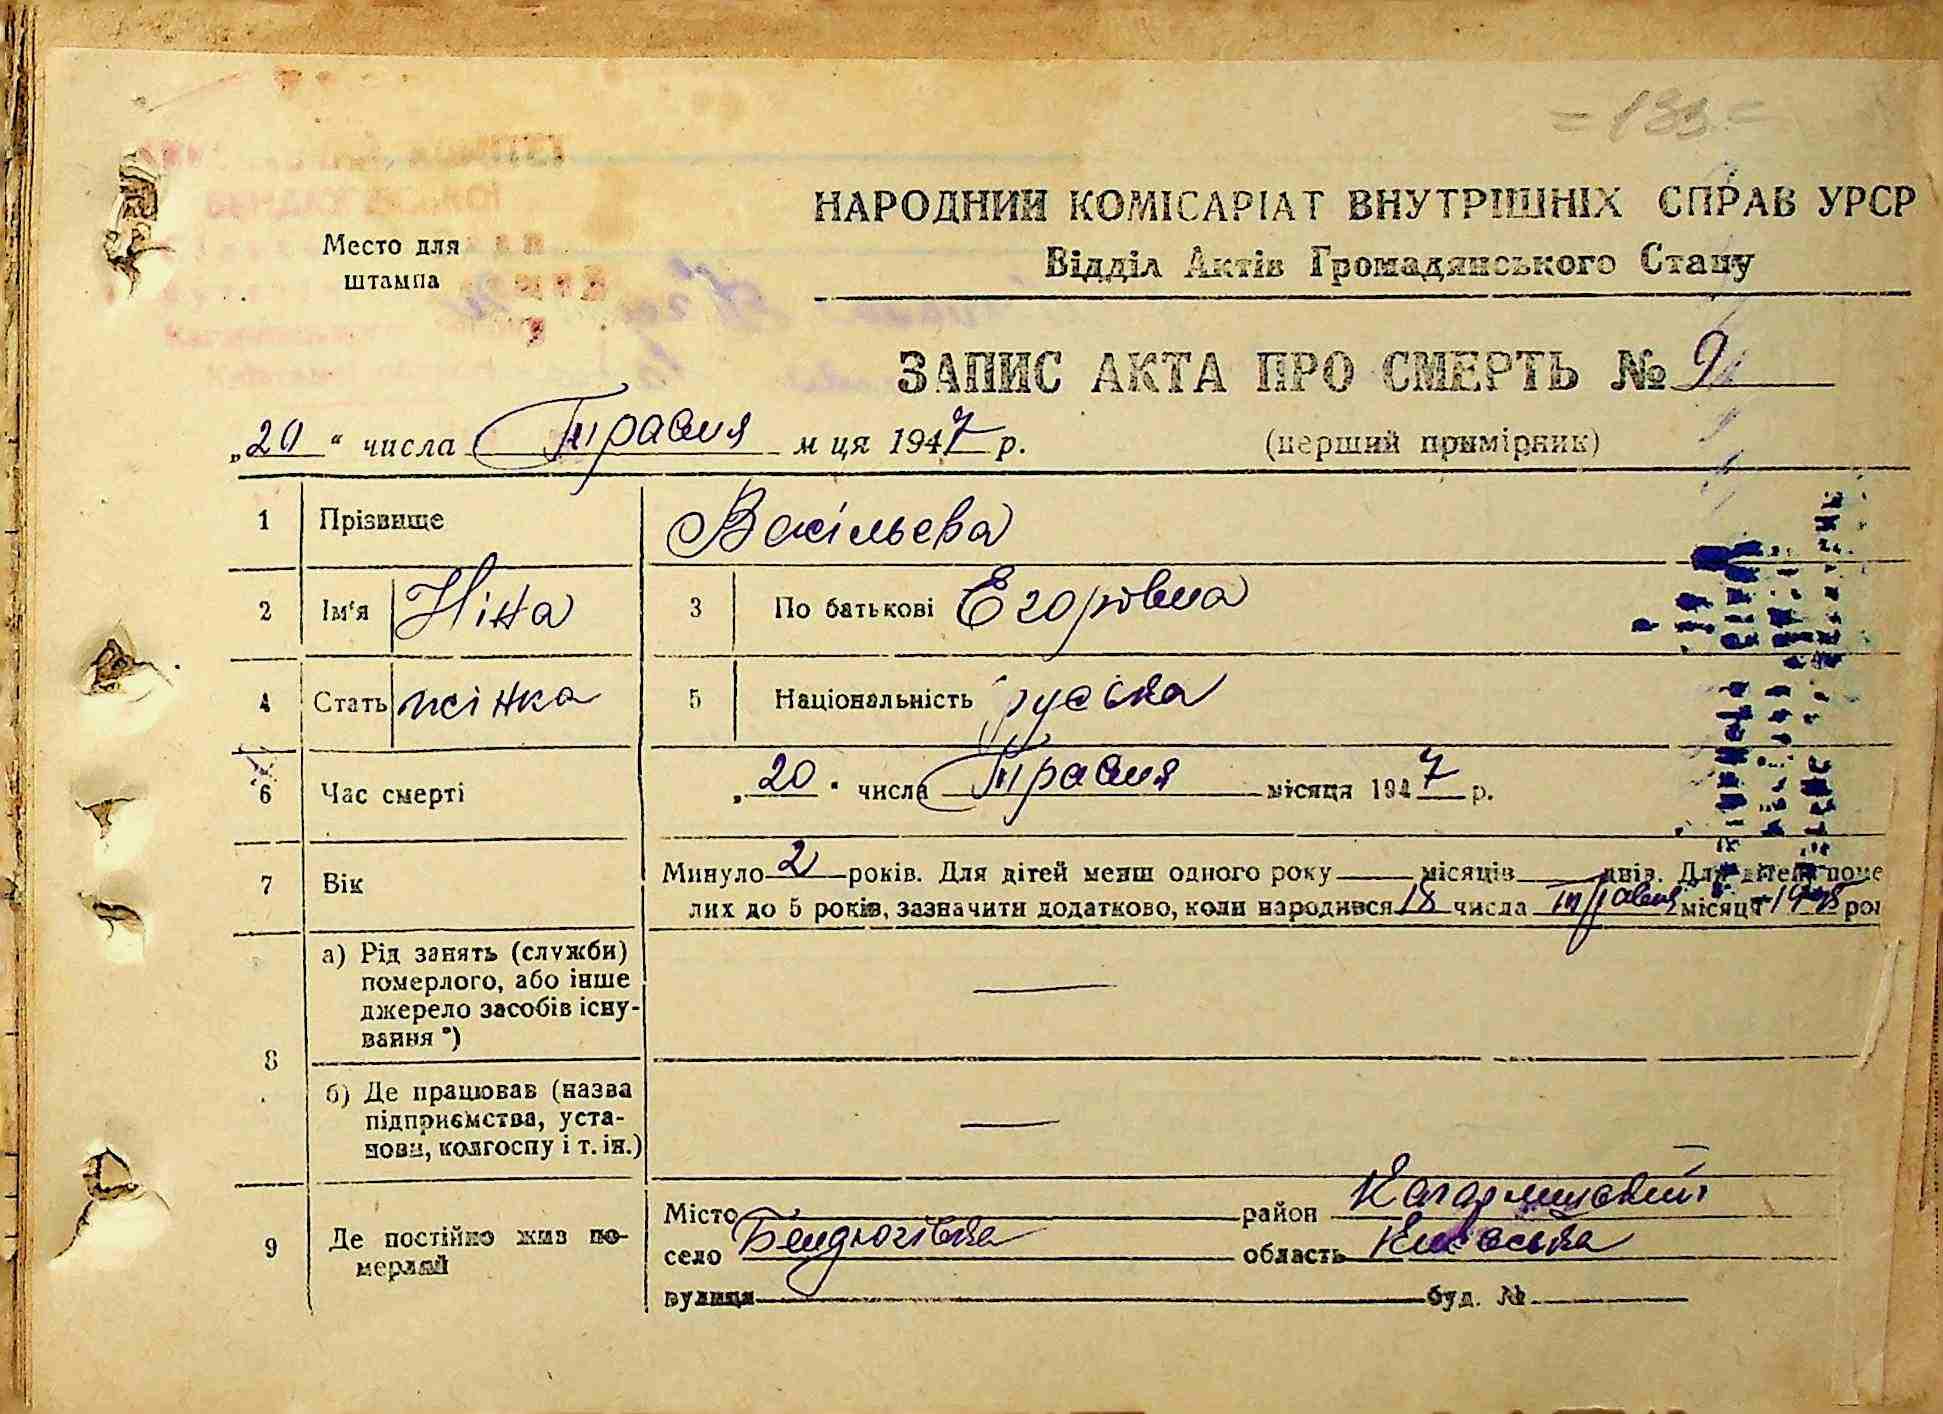 = 133 =
НАРОДНИЙ КОМІСАРІАТ ВНУТРІШНІХ СПРАВ УРСР
Место для
штампа
Відділ Актів Громадянського Стану
ЗАПИС АКТА ПРО СМЕРТЬ № 9
„20“ числа Травня м ця 1947 р. (перший примірник)
1 Прізвище Васільєва
2 Ім'я Ніна 3 По батькові Егорівна
4 Стать жінка 5 Національність руська
6 Час смерті „20“ числа Травня місяця 1947 р.
7 Вік Минуло 2 років. Для дітей менш одного року місяців днів. Для дітей поме
лих до 5 років, зазначити додатково, коли народився 18 числа Травня місяця 1945 рок
а) Рід занять (служби)
померлого, або інше
джерело засобів існу-
вання *) —
8
б) Де працював (назва
підприємства, уста-
нови, колгоспу і т. ін.) —
9 Де постійно жив по-
мерлий
Місто район Кагарлицький
село Бендюгівка область Київська
вулиця буд. №